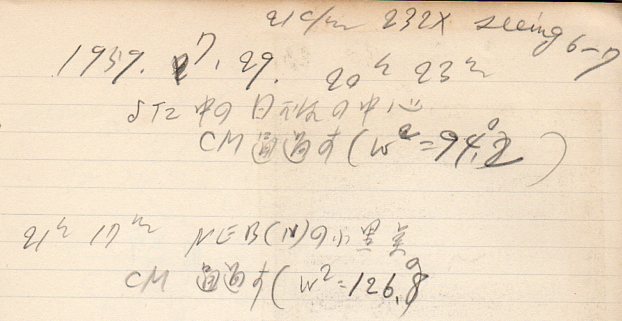 21c/m 232X seeing 6-7
1959. 7. 29. 20h 23m
STZ 中の白斑の中心
CM 通過す (W2=94.°2)
21h 17m NEB(N)の小黒美
CM 通過す (W2=126.°8